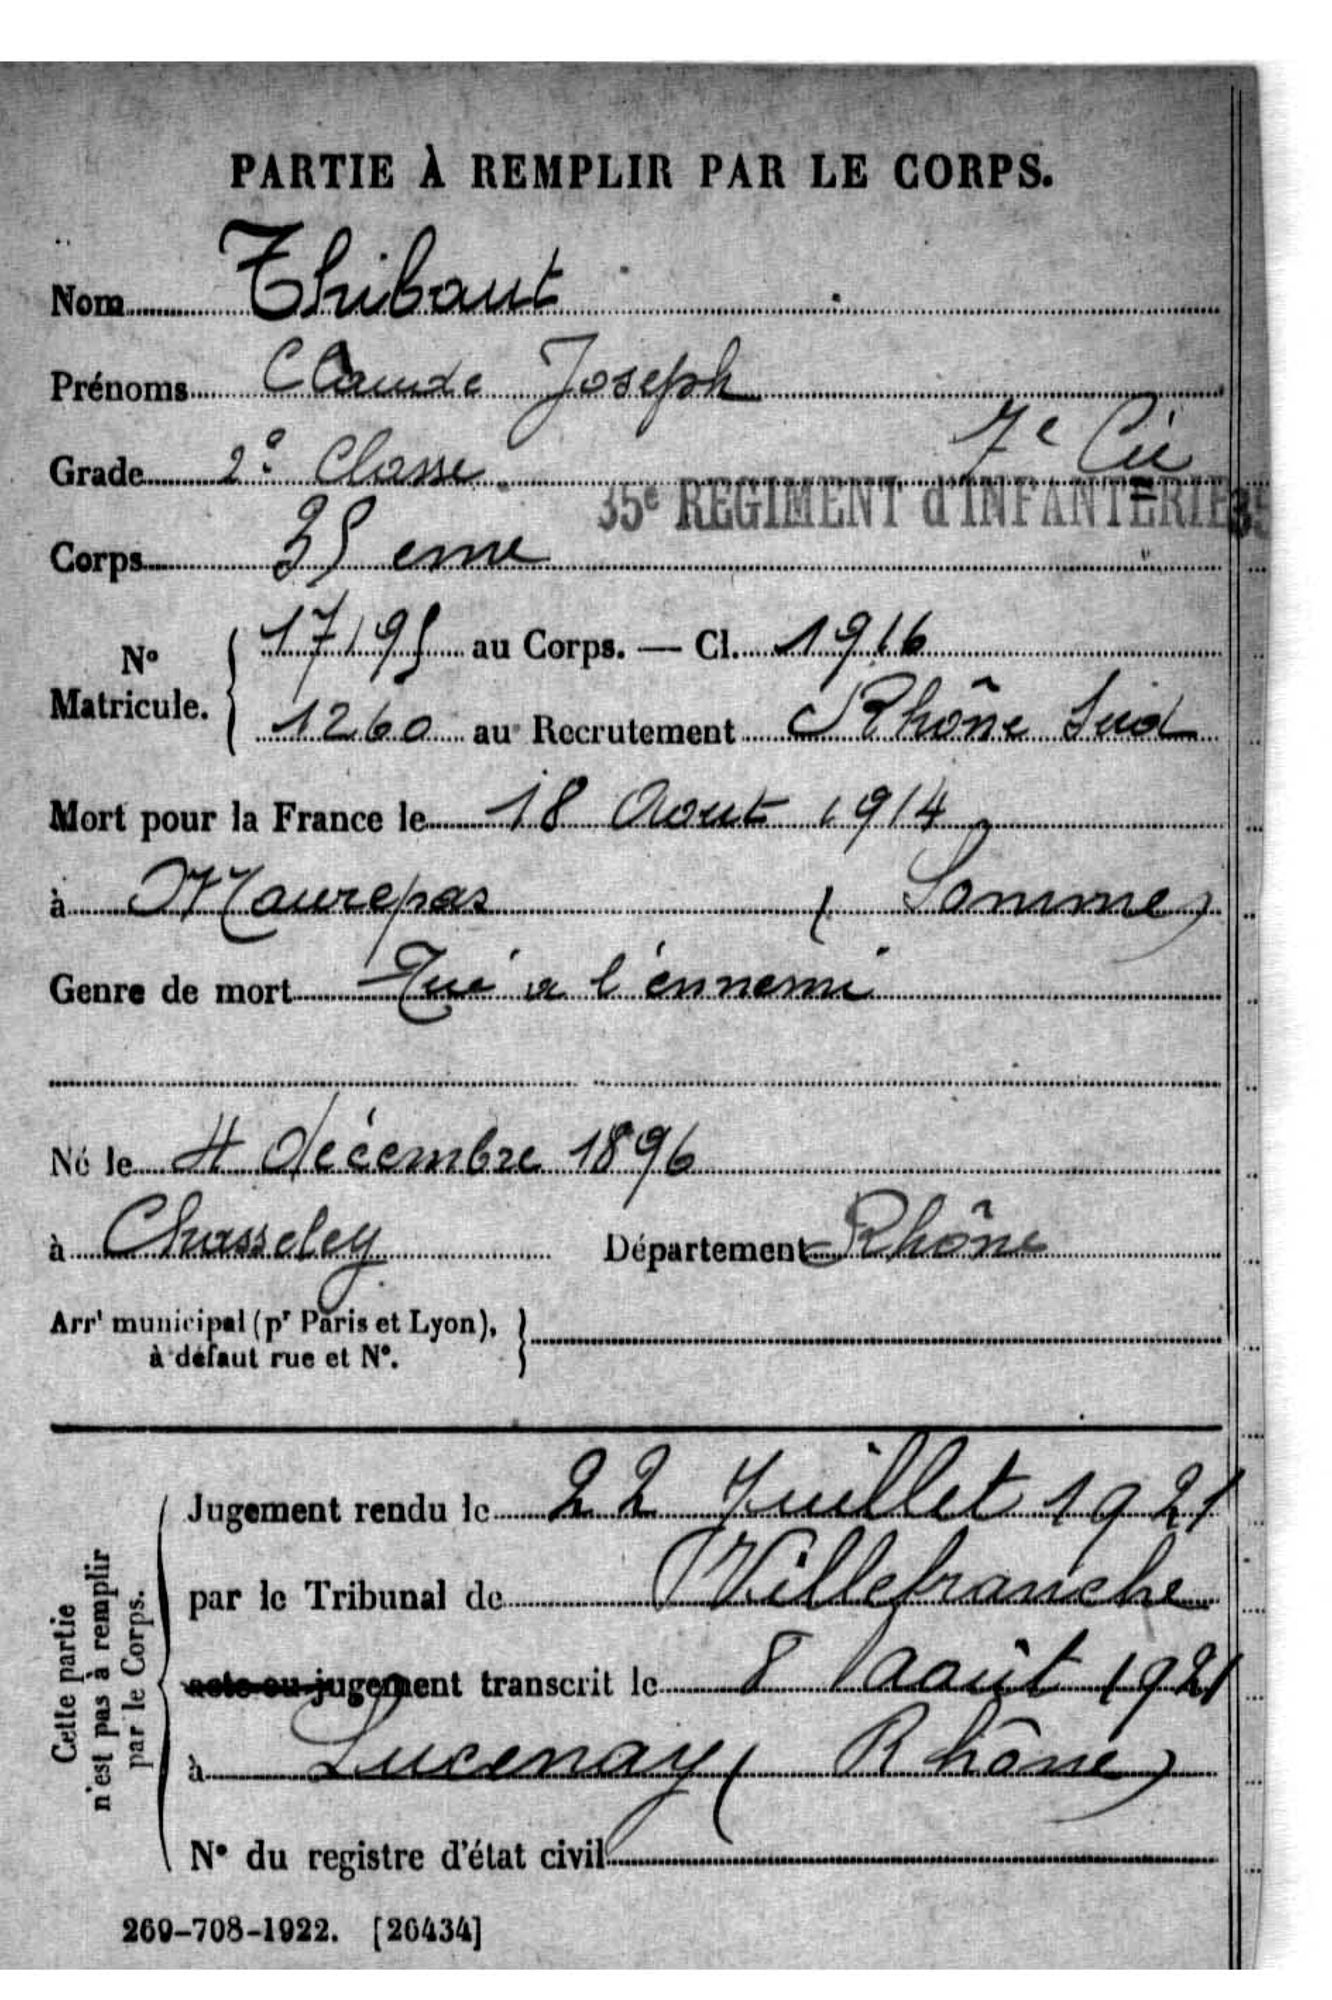 PARTIE À REMPLIR PAR LE CORPS.
Nom Thibaut
Prénoms Claude Joseph
Grade 2e Classe 7e Cie
35e REGIMENT d'INFANTERIE 35
Corps 35 eme
No Matricule. 17195 au Corps. — Cl. 1916
1260 au Recrutement Rhône Sud
Mort pour la France le 18 Aout 1914
à Maurepas (Somme)
Genre de mort Tué a l'ennemi
Né le 4 décembre 1896
à Chasseley Département Rhône
Arrt municipal (pr Paris et Lyon),
à défaut rue et N°.
Cette partie
n'est pas à remplir
par le Corps.
Jugement rendu le 22 Juillet 1921
par le Tribunal de Villefranche
acte ou jugement transcrit le 8 août 1921
à Lucenay (Rhône)
N° du registre d'état civil
269-708-1922. [26434]